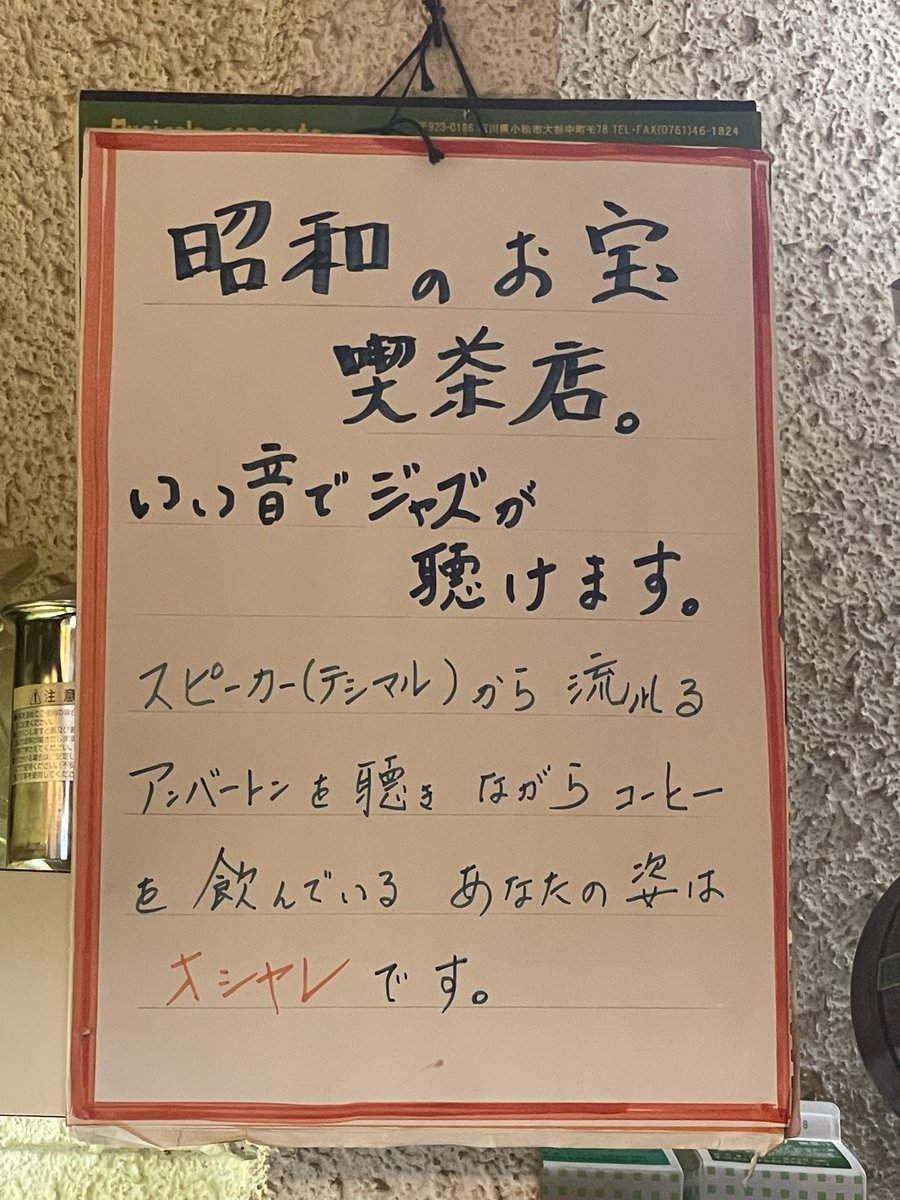 〒923-0186 石川県小松市大杉中町モ78 TEL・FAX(0761)46-1824
昭和のお宝
喫茶店。
いい音でジャズが
聴けます。
スピーカー(デシマル)から流れる
アンバートンを聴きながらコーヒー
を飲んでいるあなたの姿は
オシャレです。
注意